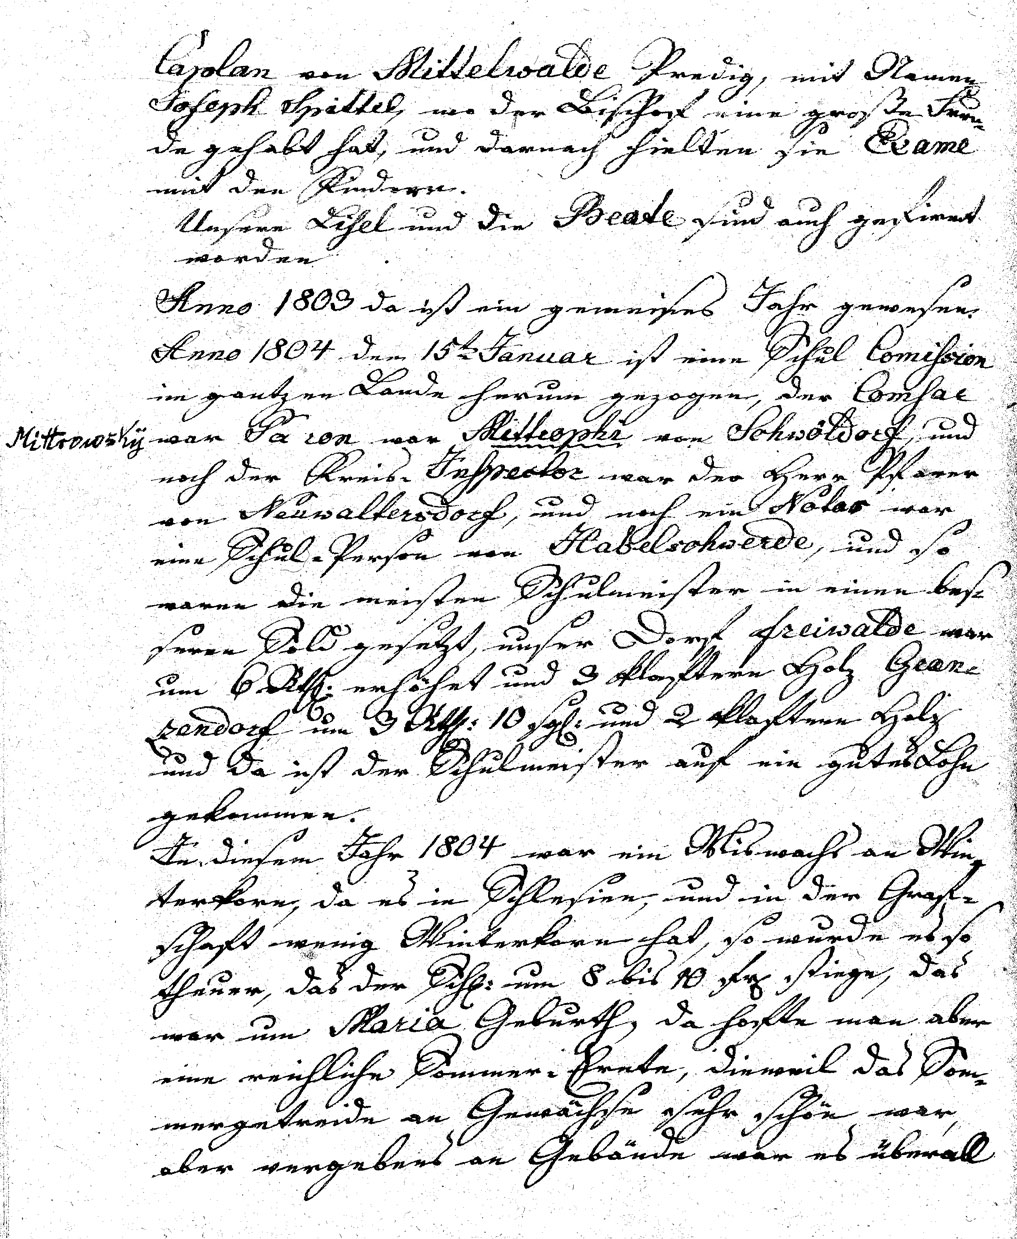 Caplan von Mittelwalde Predig, mit Namen
Joseph Spittel, wo der Bischof eine große Freu-
de gehabt hat, und darnach hielten sie Exame
mit den Kindern.
Unsere Lisel und die Beate sind auch gefirmt
worden
Anno 1803 da ist ein gemeines Jahr gewesen.
Anno 1804 den 15t Januar ist eine Schul Comission
im gantzen Lande herum gezogen, der Comsar
Mittrowskÿ
war Baron war Mittrophi von Schwöldorf, und
noch der Kreis-Inspector war der Herr Pfarer
von Neuwaltersdorf, und noch ein Notar war
eine Schul-Person von Habelschwerde, und so
waren die meisten Schulmeister in einen bes-
seren Sold gesetzt, unser Dorf freiwalde war
um 6 Rth: erhöhet und 3 Klaftern Holz Gran-
zendorf um 3 Rth: 10 sgl: und 2 Klaftern Holz
und da ist der Schulmeister auf ein gutes Lohn
gekommen.
In diesem Jahr 1804 war ein Miswachs an Win-
terkorn, da es in Schlesien, und in der Graf-
schaft wenig Winterkorn hat, so wurde es so
theuer, das der Schl: um 8 bis 10 fx stiege, das
war um Maria Geburth, da hofte man aber
eine reichliche Sommer-Ernte, dieweil das Som-
mergetreide an Gewächse sehr schön war,
aber vergebens an Gebäude war es überall